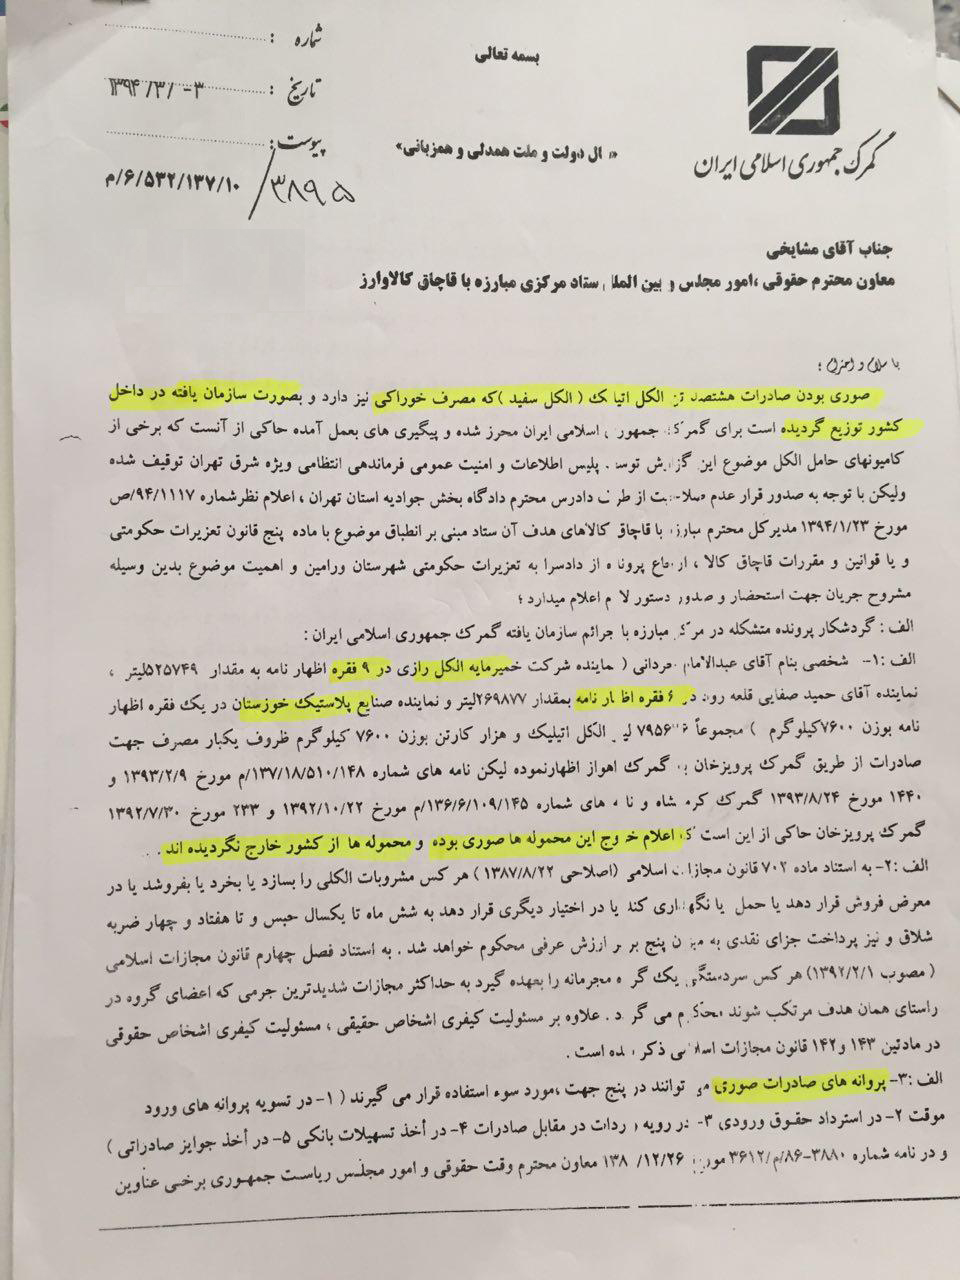 بسمه تعالی
شماره :
تاریخ : ۱۳۹۴/۳/-۳
پیوست :
۳۸۹۵/۱۰/۱۳۷/۵۳۲/۶/م
گمرک جمهوری اسلامی ایران
ال دولت و ملت همدلی و همزبانی»
جناب آقای مشایخی
معاون محترم حقوقی ،امور مجلس و بین الملل ستاد مرکزی مبارزه با قاچاق کالاوارز
با سلام و احترام ؛
صوری بودن صادرات هشتصد تن الکل اتیلیک ( الکل سفید )که مصرف خوراکی نیز دارد و بصورت سازمان یافته در داخل
کشور توزیع گردیده است برای گمرک جمهوری اسلامی ایران محرز شده و پیگیری های بعمل آمده حاکی از آنست که برخی از
کامیونهای حامل الکل موضوع این گزارش توسط پلیس اطلاعات و امنیت عمومی فرماندهی انتظامی ویژه شرق تهران توقیف شده
ولیکن با توجه به صدور قرار عدم صلاحیت از طرف دادرس محترم دادگاه بخش جوادیه استان تهران ، اعلام نظرشماره ۹۴/۱۱۱۷/ص
مورخ ۱۳۹۴/۱/۲۳ مدیرکل محترم مبارزه با قاچاق کالاهای هدف آن ستاد مبنی بر انطباق موضوع با ماده پنج قانون تعزیرات حکومتی
و یا قوانین و مقررات قاچاق کالا ، ارجاع پرونده از دادسرا به تعزیرات حکومتی شهرستان ورامین و اهمیت موضوع بدین وسیله
مشروح جریان جهت استحضار و صدور دستور لازم اعلام میدارد ؛
الف : گردشکار پرونده متشکله در مرکز مبارزه با جرائم سازمان یافته گمرک جمهوری اسلامی ایران :
الف :۱- شخصی بنام آقای عبدالامام مردانی ( نماینده شرکت خمیرمایه الکل رازی در ۹ فقره اظهار نامه به مقدار ۵۲۵۷۴۹لیتر ،
نماینده آقای حمید صفایی قلعه در ۶ فقره اظهار نامه بمقدار ۲۶۹۸۷۷لیتر و نماینده صنایع پلاستیک خوزستان در یک فقره اظهار
نامه بوزن ۷۶۰۰کیلوگرم ) مجموعاً لیتر الکل اتیلیک و هزار کارتن بوزن ۷۶۰۰ کیلوگرم ظروف یکبار مصرف جهت
صادرات از طریق گمرک پرویزخان به گمرک اهواز اظهارنموده لیکن نامه های شماره ۱۳۷/۱۸/۵۱۰/۱۴۸/م مورخ ۱۳۹۳/۲/۹ و
۱۴۴۰ مورخ ۱۳۹۳/۸/۲۴ گمرک کرمانشاه و نامه های شماره ۱۳۶/۶/۱۰۹/۱۴۵/م مورخ ۱۳۹۲/۱۰/۲۲ و ۲۳۳ مورخ ۱۳۹۲/۷/۳۰
گمرک پرویزخان حاکی از این است که اعلام خروج این محموله ها صوری بوده و محموله ها از کشور خارج نگردیده اند .
الف :۲- به استناد ماده ۷۰۲ قانون مجازات اسلامی (اصلاحی ۱۳۸۷/۸/۲۲ ) هر کس مشروبات الکلی را بسازد یا بخرد یا بفروشد یا در
معرض فروش قرار دهد یا حمل یا نگهداری کند یا در اختیار دیگری قرار دهد به شش ماه تا یکسال حبس و تا هفتاد و چهار ضربه
شلاق و نیز پرداخت جزای نقدی به میزان پنج برابر ارزش عرفی محکوم خواهد شد . به استناد فصل چهارم قانون مجازات اسلامی
( مصوب ۱۳۹۲/۲/۱) هر کس سردستگی یک گروه مجرمانه را بعهده گیرد به حداکثر مجازات شدیدترین جرمی که اعضای گروه در
راستای همان هدف مرتکب شوند محکوم می گردد . علاوه بر مسئولیت کیفری اشخاص حقیقی ، مسئولیت کیفری اشخاص حقوقی
در مادتین ۱۴۳ و۱۴۲ قانون مجازات اسلامی ذکر شده است .
الف :۳- پروانه های صادرات صوری می توانند در پنج جهت ،مورد سوء استفاده قرار می گیرند ( ۱- در تسویه پروانه های ورود
موقت ۲- در استرداد حقوق ورودی ۳- در رویه واردات در مقابل صادرات ۴- در أخذ تسهیلات بانکی ۵- در أخذ جوایز صادراتی )
و در نامه شماره ۳۸۸۰-۸۶/م/۳۶۱۲ مورخ /۱۲/۲۶ معاون محترم وقت حقوقی و امور مجلس ریاست جمهوری برخی عناوین